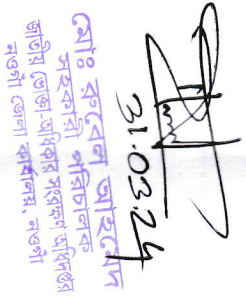 31.03.24
মোঃ রুবেল আহমেদ
সহকারী পরিচালক
জাতীয় ভোক্তা-অধিকার সংরক্ষণ অধিদপ্তর
নওগাঁ জেলা কার্যালয়, নওগাঁ